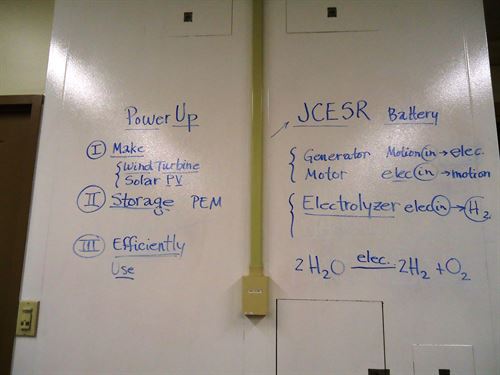 Power Up
I Make
Wind Turbine
Solar PV
II Storage PEM
III Efficiently
Use
JCESR Battery
Generator Motion in → elec.
Motor elec in → motion
Electrolyzer elec in → H₂
2H₂O elec. 2H₂ + O₂